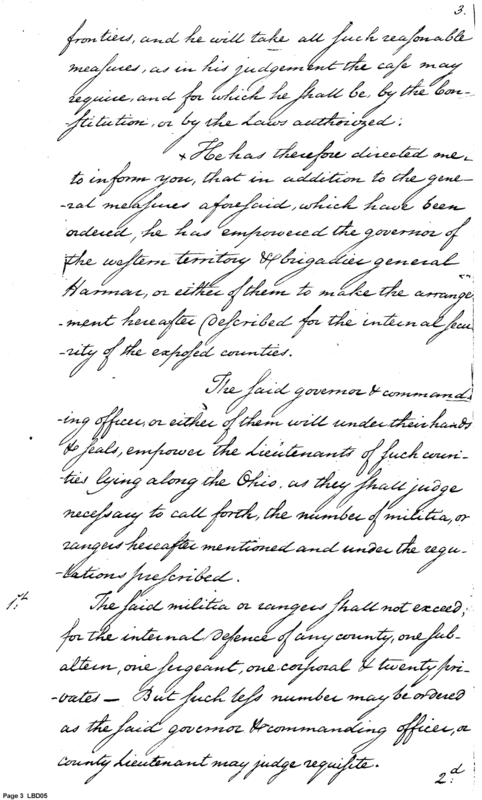 3.
frontiers, and he will take all such reasonable
measures, as in his judgement the case may
require, and for which he shall be, by the Con-
-stitution, or by the Laws authorized.
+ He has therefore directed me,
to inform you, that in addition to the gene-
-ral measures aforesaid, which have been
ordered, he has empowered the governor of
the western territory & brigadier general
Harmar, or either of them to make the arrange
-ment hereafter described for the internal secu
-rity of the exposed counties.
The said governor & command-
-ing officer, or either of them will under their hands
& seals, empower the Lieutenants of such coun-
ties lying along the Ohio, as they shall judge
necessary to call forth, the number of militia, or
rangers hereafter mentioned and under the regu-
-lations prescribed.
1st. The said militia or rangers shall not exceed,
for the internal defence of any county, one sub-
altern, one sergeant, one corporal & twenty pri-
-vates — But such less number may be ordered
as the said governor & commanding officer, or
county Lieutenant may judge requisite.
2.d
Page 3 LBD05